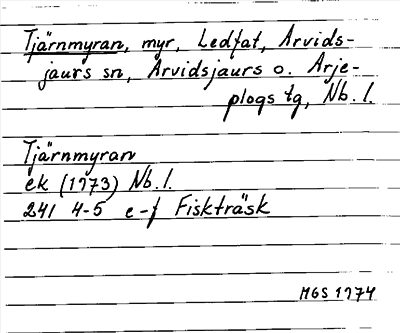 Tjärnmyran, myr, Ledfat, Arvids-
jaurs sn, Arvidsjaurs o. Arje-
plogs tg, Nb. l.
Tjärnmyran
ek (1973) Nb. l.
241 4-5 e-f Fiskträsk
MGS 1974